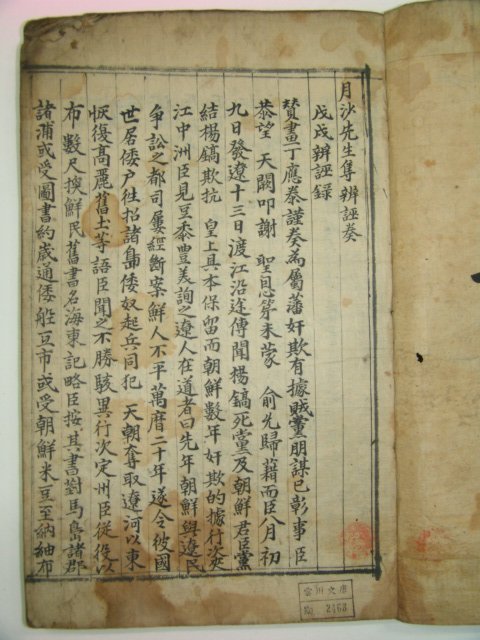 月沙先生集 辨誣奏
戊戌辨誣録
賛畫丁應泰謹奏為屬藩奸欺有據賊黨朋謀已彰事臣
恭望 天闕叩謝 聖恩等未蒙 俞允歸藉而臣八月初
九日發遼十三日渡江沿途傳聞楊鎬死黨及朝鮮君臣黨
結楊鎬欺抗 皇上具本保留而朝鮮數年奸欺的據行次夾
江中洲臣見豆黍豊美詢之遼人在道者曰先年朝鮮與遼民
爭訟之都司屢經斷案鮮人不平萬暦二十年遂令彼國
世居倭户徃招諸島倭奴起兵同犯 天朝奪取遼河以東
恢復高麗舊土等語臣聞之不勝駭異行次定州臣從役以
布數尺換鮮民舊書名海東記略臣按其書對馬島諸郡
諸浦或受圖書約歳通倭舩互市或受朝鮮米豆至納紬布
2468